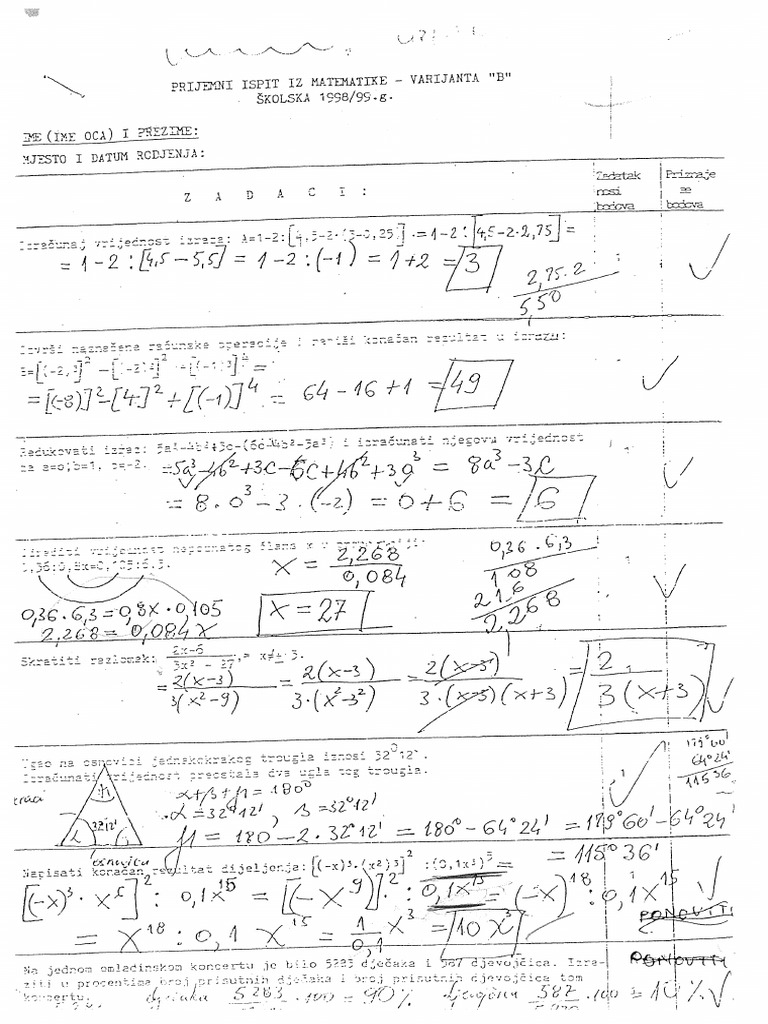 PRIJEMNI ISPIT IZ MATEMATIKE - VARIJANTA "B"
ŠKOLSKA 1998/99.g.
IME (IME OCA) I PREZIME:
MJESTO I DATUM RODJENJA:
Z A D A C I :
Zadatak nosi bodova
Priznaje se bodova
Izračunaj vrijednost izraza: A=1-2:[4,5-2·(3-0,25)] = 1-2:[4,5-2·2,75] =
= 1-2:[4,5-5,5] = 1-2:(-1) = 1+2 = 3
2,75·2
5,50
Izvrši naznačene računske operacije i napiši konačan rezultat u izrazu:
=[(-8)]²-[4]²+[(-1)]⁴ = 64-16+1 = 49
Redukovati izraz: 5a³-4b²+3c-(6c-4b²-3a³) i izračunati njegovu vrijednost
za a=0; b=1, c=-2. =5a³-4b²+3c-6c+4b²+3a³ = 8a³-3c
= 8·0³-3·(-2) = 0+6 = 6
vrijednost nepoznatog člana x u
0,36:0,8x=0,105:6,3.
x = 2,268 / 0,084
0,36·6,3
108
216
2,268
0,36·6,3=0,8x·0,105
2,268= 0,084x
x = 27
Skratiti razlomak: 2x-6 / 3x² - 27, = x≠± 3.
= 2(x-3) / 3(x²-9) = 2(x-3) / 3·(x²-3²) = 2(x-3) / 3·(x-3)(x+3) = 2 / 3(x+3)
Ugao na osnovici jednakokrakog trougla iznosi 32°12'.
Izračunati vrijednost preostala dva ugla tog trougla.
179°60'
64°24'
115°36'
α+β+γ=180°
α=32°12', β=32°12'
32°12'
osnovica
γ = 180-2·32°12' = 180°-64°24' = 179°60'-64°24'
= 115°36'
Napisati konačan rezultat dijeljenja: [(-x)³·(x²)³]² :(0,1x³)⁵ =
[(-x)³·x⁶]² : 0,1x¹⁵ = [(-x⁹)]² : 0,1x¹⁵ = (-x)¹⁸ : 0,1x¹⁵
PONOVITI
= x¹⁸ : 0,1 x¹⁵ = 1/0,1 x³ = 10 x³
PONOVITI
Na jednom omladinskom koncertu je bilo 5283 dječaka i 587 djevojčica. Izra-
ziti u procentima broj prisutnih dječaka i broj prisutnih djevojčica tom
koncertu. dječaka 5283 ·100 = 90% djevojčica 587 ·100 = 10%